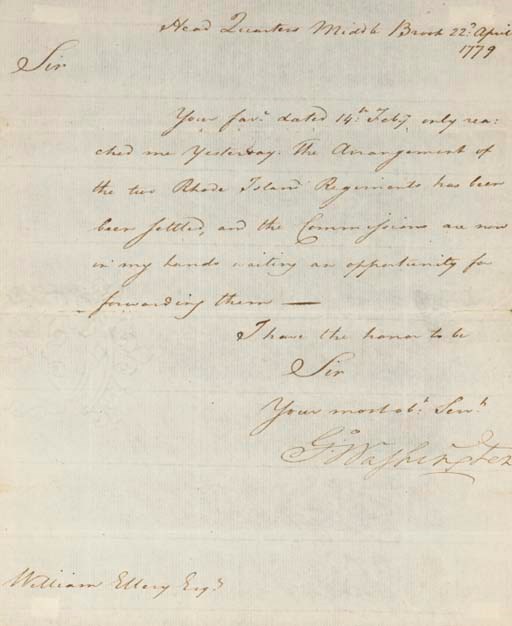 Head Quarters Middle Brook 22d. April
1779
Sir
Your favr. dated 14th. Feby. only rea:
ched me Yesterday. The Arrangement of
the two Rhode Island Regiments has been
been settled, and the Commissions are now
in my hands waiting an opportunity for
forwarding them —
I have the honor to be
Sir
Your most obt. Servt.
Go. Washington
William Ellery Esqr.